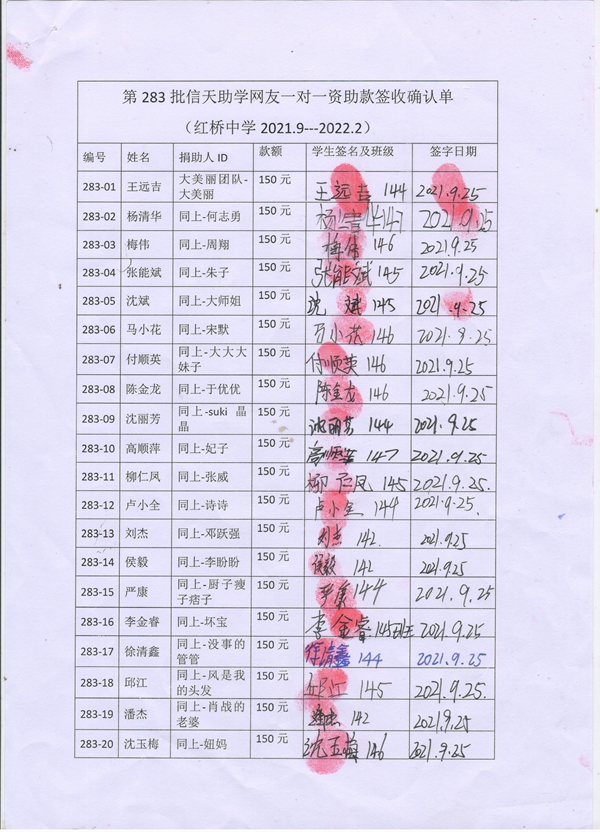 第 283 批信天助学网友一对一资助款签收确认单
（红桥中学 2021.9---2022.2）
编号 姓名 捐助人 ID 款额 学生签名及班级 签字日期
283-01 王远吉 大美丽团队-大美丽 150 元 王远吉 144 2021.9.25
283-02 杨清华 同上-何志勇 150 元 杨清华 147 2021.9.25
283-03 梅伟 同上-周翔 150 元 梅伟 146 2021.9.25
283-04 张能斌 同上-朱子 150 元 张能斌 145 2021.9.25
283-05 沈斌 同上-大师姐 150 元 沈斌 145 2021.9.25
283-06 马小花 同上-宋默 150 元 马小花 146 2021.9.25
283-07 付顺英 同上-大大大妹子 150 元 付顺英 146 2021.9.25
283-08 陈金龙 同上-于优优 150 元 陈金龙 146 2021.9.25
283-09 沈丽芳 同上-suki 晶晶 150 元 沈丽芳 144 2021.9.25
283-10 高顺萍 同上-妃子 150 元 高顺萍 147 2021.9.25
283-11 柳仁凤 同上-张威 150 元 柳仁凤 145 2021.9.25.
283-12 卢小全 同上-诗诗 150 元 卢小全 144 2021.9.25.
283-13 刘杰 同上-邓跃强 150 元 刘杰 142. 2021.9.25
283-14 侯毅 同上-李盼盼 150 元 侯毅 142 2021.9.25
283-15 严康 同上-厨子瘦子痞子 150 元 严康 144 2021.9.25
283-16 李金睿 同上-坏宝 150 元 李金睿 145班 2021.9.25
283-17 徐清鑫 同上-没事的管管 150 元 徐清鑫 144 2021.9.25
283-18 邱江 同上-风是我的头发 150 元 邱江 145 2021.9.25.
283-19 潘杰 同上-肖战的老婆 150 元 潘杰 142 2021.9.25
283-20 沈玉梅 同上-妞妈 150 元 沈玉梅 146 2021.9.25